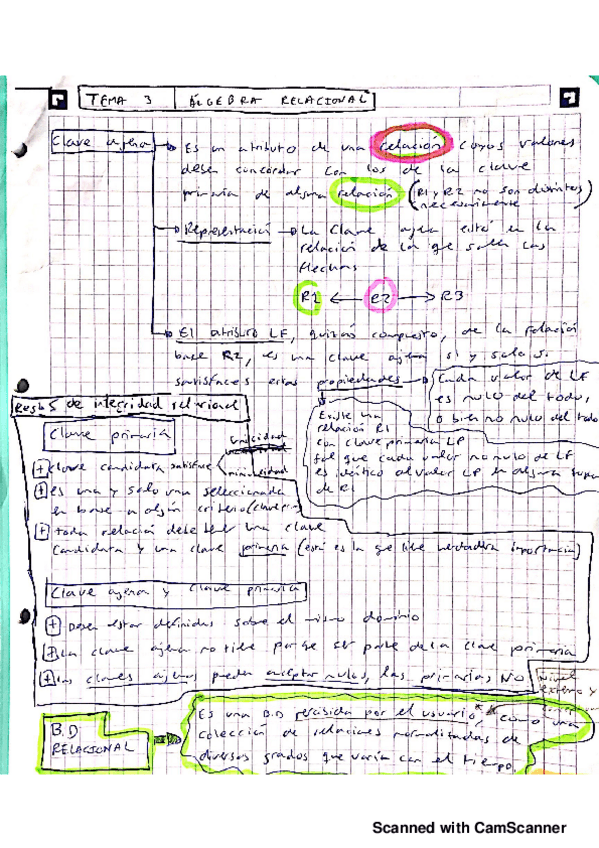 TEMA 3 ÁLGEBRA RELACIONAL
Clave ajena
Es un atributo de una relación cuyos valores
deben concordar con los de la clave
primaria de alguna relación (R1 y R2 no son distintos
necesariamente)
Representación → La clave ajena está en la
relación de la qe salen las
flechas
R1 ← R2 → R3
El atributo LF, quizás compuesto, de la relación
base R2, es una clave ajena si y solo si
satisface estas propiedades
Cada valor de LF
es nulo del todo,
o bien no nulo del todo
Existe una
relación R1
con clave primaria LP
tal que cada valor no nulo de LF
es idéntico al valor LP en alguna
de R1
Reglas de integridad relacional
Clave primaria
+ clave candidata satisface
unicidad
minimalidad
+ es una y solo una seleccionada
en base a algún criterio (clave
+ toda relación debe tener una clave
candidata y una clave primaria (esta es la qe tiene verdadera importancia)
Clave ajena y clave primaria
+ Deben estar definidas sobre el mismo dominio
+ La clave ajena no tiene porqe ser parte de la clave primaria
+ Las claves ajenas pueden aceptar nulos, las primarias NO
nivel
externo y
B.D
RELACIONAL
Es una B.D percibida por el usuario, como una
colección de relaciones normalizadas de
diversos grados que varían con el tiempo.
Scanned with CamScanner